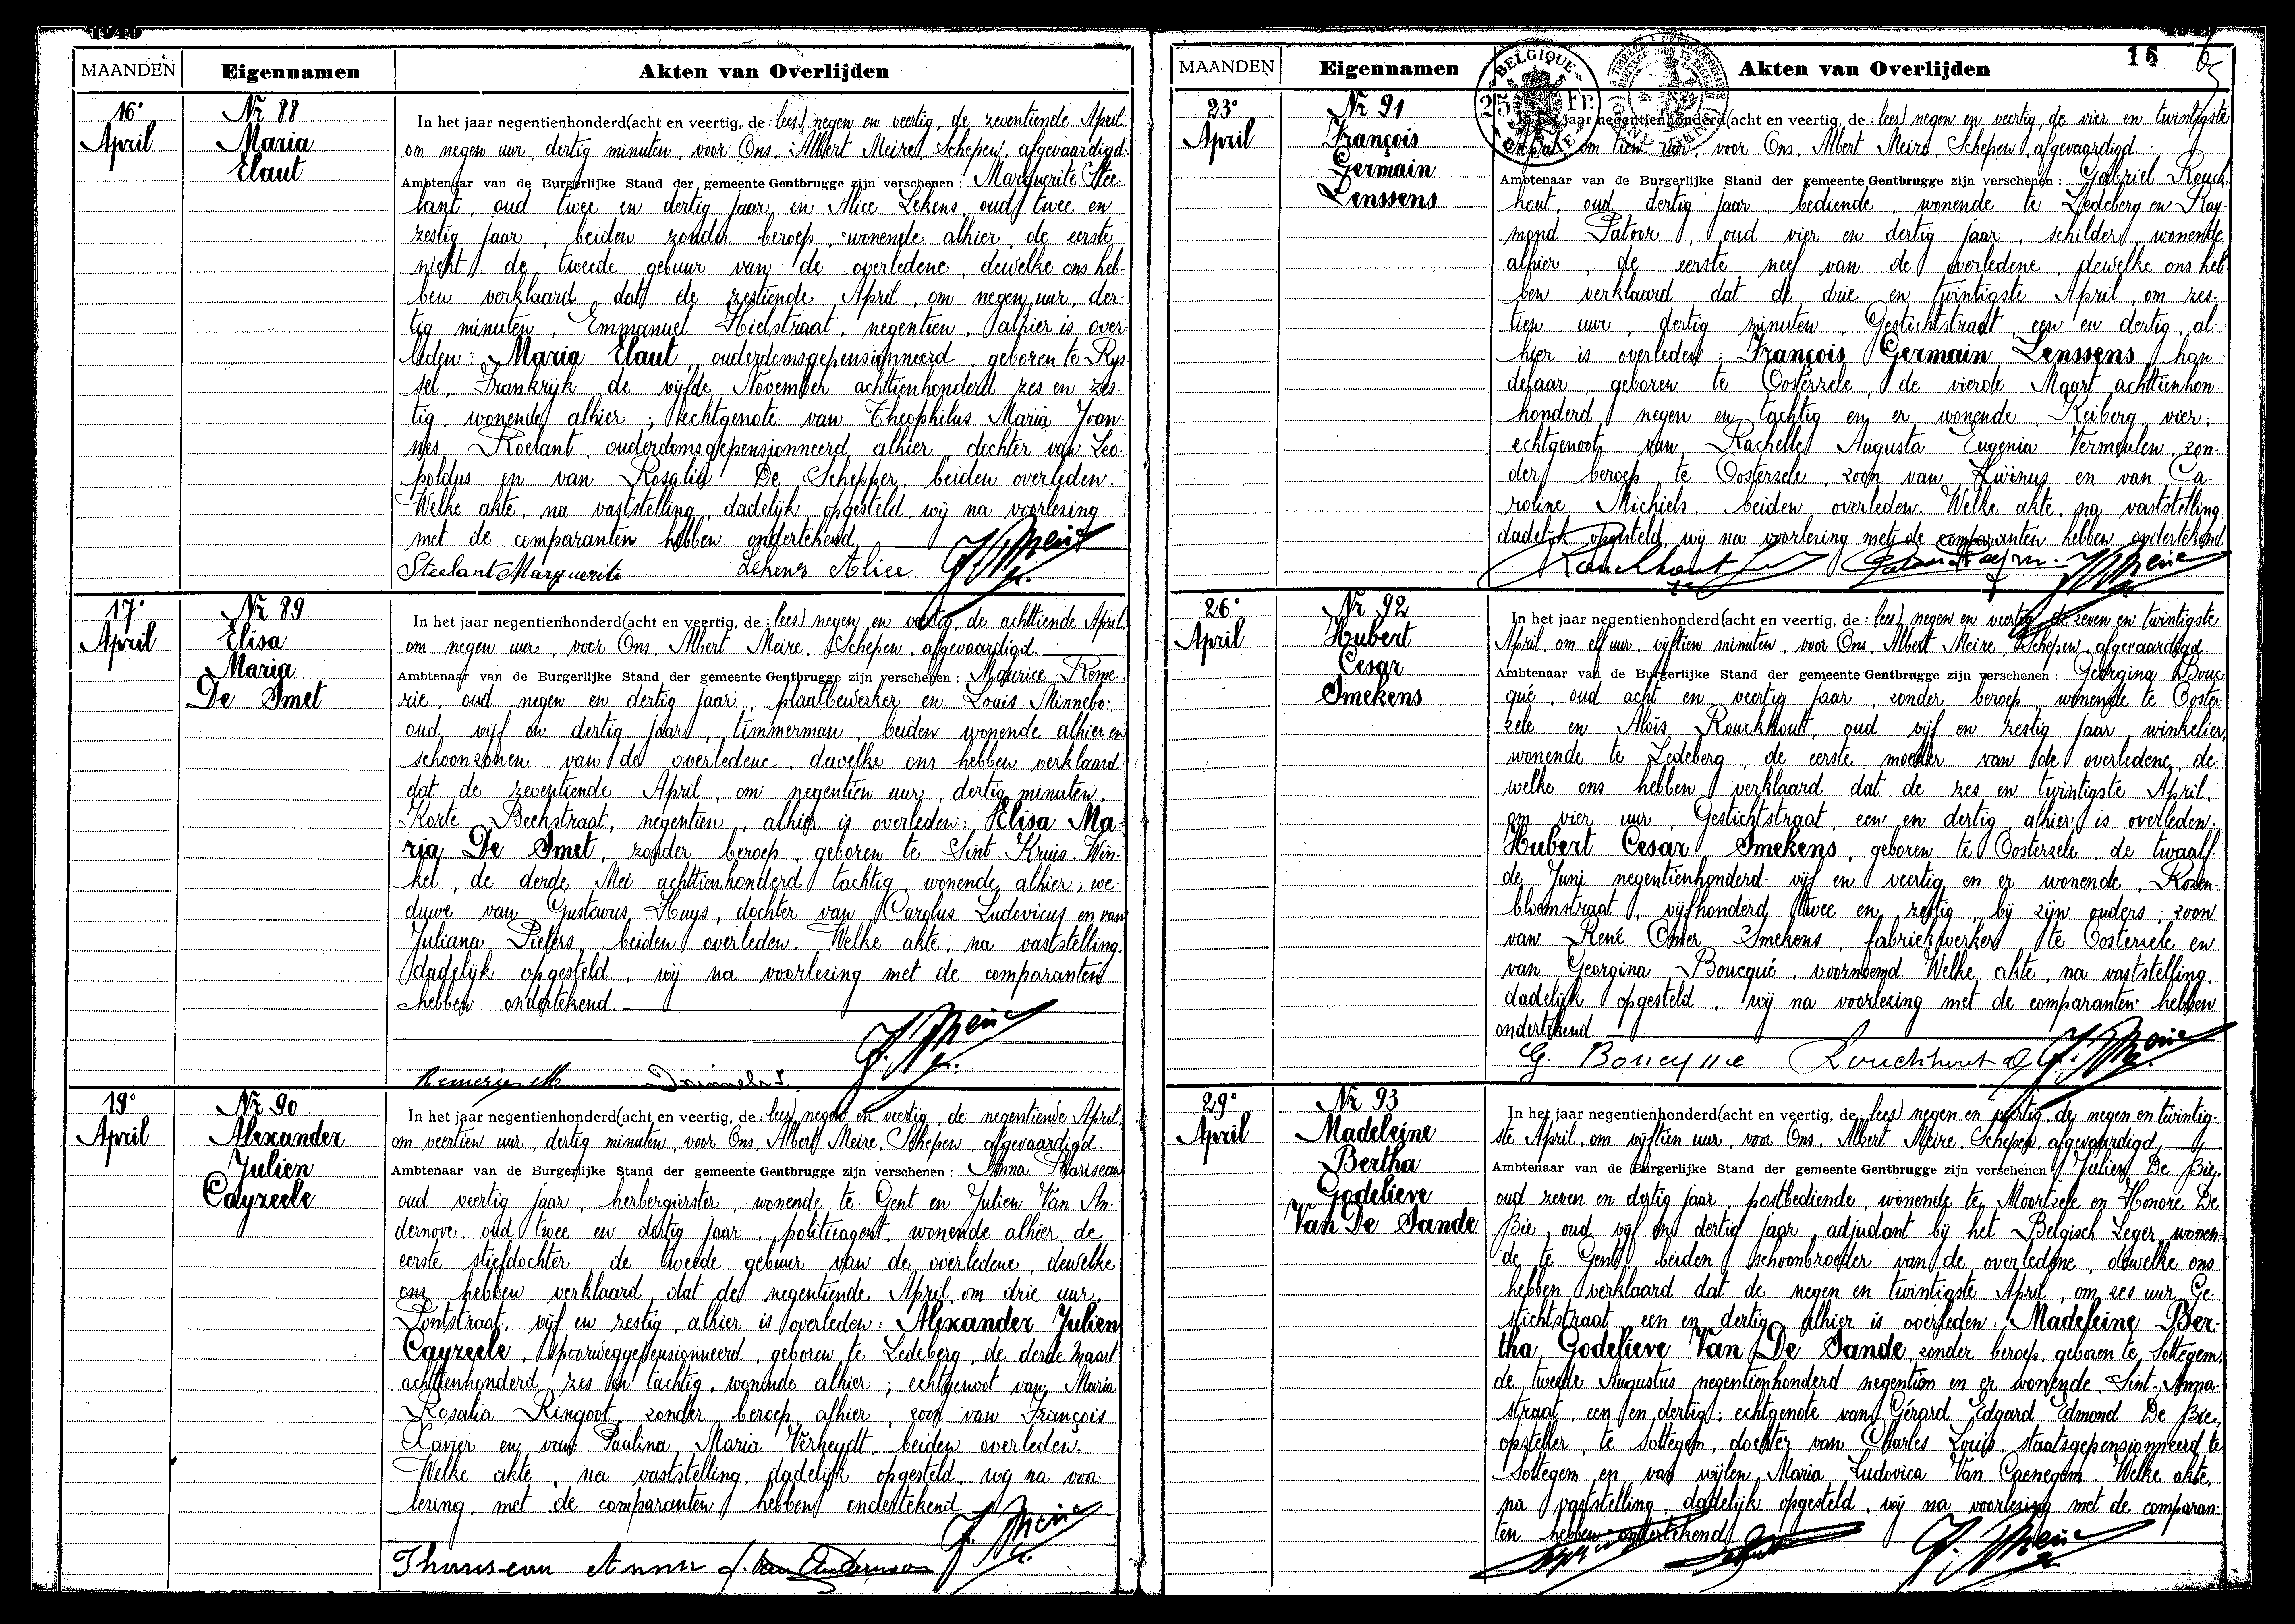 1949
MAANDEN Eigennamen Akten van Overlijden
16e
April
Nr 88
Maria
Elaut
In het jaar negentienhonderd (acht en veertig, de : lees) negen en veertig, de zeventiende April
om negen uur, dertig minuten, voor Ons, Albert Meire, Schepen, afgevaardigd
Ambtenaar van de Burgerlijke Stand der gemeente Gentbrugge zijn verschenen : Marguerite Stee-
lant, oud twee en dertig jaar en Alice Lekens, oud twee en
zestig jaar, beiden zonder beroep, wonende alhier, de eerste
nicht de tweede gebuur van de overledene, dewelke ons heb-
ben verklaard dat de zestiende April, om negen uur, der-
tig minuten, Emmanuel Hielstraat, negentien, alhier is over-
leden : Maria Elaut, ouderdomsgepensionneerd, geboren te Rys-
sel, Frankrijk, de vijfde November achttienhonderd zes en zes-
tig, wonende alhier ; echtgenote van Theophilus Maria Joan-
nes Roelant, ouderdomsgepensionneerd alhier, dochter van Leo-
poldus en van Rosalia De Schepper, beiden overleden.
Welke akte, na vaststelling, dadelijk opgesteld, wij na voorlezing
met de comparanten hebben ondertekend
Steelant Marguerite Lekens Alice
17e
April
Nr 89
Elisa
Maria
De Smet
In het jaar negentienhonderd (acht en veertig, de : lees) negen en veertig, de achttiende April,
om negen uur, voor Ons, Albert Meire, Schepen, afgevaardigd
Ambtenaar van de Burgerlijke Stand der gemeente Gentbrugge zijn verschenen : Maurice Reme-
rie, oud negen en dertig jaar, plaatbewerker en Louis Minnebo,
oud vijf en dertig jaar, timmerman, beiden wonende alhier en
schoonzonen van de overledene, dewelke ons hebben verklaard
dat de zeventiende April, om negentien uur, dertig minuten,
Korte Beekstraat, negentien, alhier is overleden : Elisa Ma-
ria De Smet, zonder beroep, geboren te Sint Kruis-Win-
kel, de derde Mei achttienhonderd tachtig, wonende alhier ; we-
duwe van Gustavus Huys, dochter van Carolus Ludovicus en van
Juliana Pieters, beiden overleden. Welke akte, na vaststelling,
dadelijk opgesteld, wij na voorlezing met de comparanten
hebben ondertekend
19e
April
Nr 90
Alexander
Julien
Cayzeele
In het jaar negentienhonderd (acht en veertig, de : lees) negen en veertig, de negentiende April,
om veertien uur, dertig minuten, voor Ons, Albert Meire, Schepen, afgevaardigd
Ambtenaar van de Burgerlijke Stand der gemeente Gentbrugge zijn verschenen : Anna
oud veertig jaar, herbergierster, wonende te Gent en Julien Van An-
dernove, oud twee en dertig jaar, politieagent, wonende alhier, de
eerste stiefdochter, de tweede gebuur van de overledene, dewelke
ons hebben verklaard dat de negentiende April, om drie uur,
Pontstraat, vijf en zestig, alhier is overleden : Alexander Julien
Cayzeele, spoorweggepensionneerd, geboren te Ledeberg, de derde Maart
achttienhonderd zes en tachtig, wonende alhier ; echtgenoot van Maria
Rosalia Ringoot, zonder beroep, alhier, zoon van François
Xavier en van Paulina Maria Verheydt, beiden overleden.
Welke akte, na vaststelling, dadelijk opgesteld, wij na voor-
lezing, met de comparanten hebben ondertekend
Anna
1949
15
MAANDEN Eigennamen Akten van Overlijden
BELGIQUE
25 Fr.
BELGIE
23e
April
Nr 91
François
Germain
Lenssens
In het jaar negentienhonderd (acht en veertig, de : lees) negen en veertig, de vier en twintigste
April, om tien uur, voor Ons, Albert Meire, Schepen, afgevaardigd
Ambtenaar van de Burgerlijke Stand der gemeente Gentbrugge zijn verschenen : Gabriel Rouck-
hout, oud dertig jaar, bediende, wonende te Ledeberg en Ray-
mond Patoor, oud vier en dertig jaar, schilder, wonende
alhier, de eerste neef van de overledene, dewelke ons heb-
ben verklaard dat de drie en twintigste April, om zes-
tien uur, dertig minuten, Gestichtstraat, een en dertig, al-
hier is overleden : François Germain Lenssens, han-
delaar, geboren te Oosterzele, de vierde Maart achttienhon-
honderd negen en tachtig en er wonende, Keiberg, vier ;
echtgenoot van Rachelle Augusta Eugenia Vermeulen, zon-
der beroep te Oosterzele, zoon van Livinus en van Ca-
roline Michiels, beiden overleden. Welke akte, na vaststelling,
dadelijk opgesteld, wij na voorlezing met de comparanten hebben ondertekend
Rouckhout
26e
April
Nr 92
Hubert
Cesar
Smekens
In het jaar negentienhonderd (acht en veertig, de : lees) negen en veertig, de zeven en twintigste
April, om elf uur, vijftien minuten, voor Ons, Albert Meire, Schepen, afgevaardigd
Ambtenaar van de Burgerlijke Stand der gemeente Gentbrugge zijn verschenen : Georgina Bouc-
qué, oud acht en veertig jaar, zonder beroep, wonende te Ooster-
zele en Aloïs Rouckhout, oud vijf en zestig jaar, winkelier,
wonende te Ledeberg, de eerste moeder van de overledene, de-
welke ons hebben verklaard dat de zes en twintigste April,
om vier uur, Gestichtstraat, een en dertig, alhier is overleden :
Hubert Cesar Smekens, geboren te Oosterzele, de twaalf-
de Juni negentienhonderd vijf en veertig en er wonende, Rozen-
bloemstraat, vijfhonderd twee en zestig, bij zijn ouders ; zoon
van René Omer Smekens, fabriekwerker te Oosterzele en
van Georgina Boucqué, voornoemd. Welke akte, na vaststelling,
dadelijk opgesteld, wij na voorlezing met de comparanten hebben
ondertekend
G. Boucque Rouckhout
29e
April
Nr 93
Madeleine
Bertha
Godelieve
Van De Sande
In het jaar negentienhonderd (acht en veertig, de : lees) negen en veertig, de negen en twintig-
ste April, om vijftien uur, voor Ons, Albert Meire, Schepen, afgevaardigd
Ambtenaar van de Burgerlijke Stand der gemeente Gentbrugge zijn verschenen : Julien De Bie,
oud zeven en dertig jaar, postbediende, wonende te Moortzele en Honoré De
Bie, oud vijf en dertig jaar, adjudant bij het Belgisch Leger, wonen-
de te Gent, beiden schoonbroeder van de overledene, dewelke ons
hebben verklaard dat de negen en twintigste April, om zes uur, Ge-
stichtstraat een en dertig, alhier is overleden : Madeleine Ber-
tha Godelieve Van De Sande, zonder beroep, geboren te Sottegem,
de tweede Augustus negentienhonderd negentien en er wonende, Sint-Anna-
straat, een en dertig ; echtgenote van Gérard Edgard Edmond De Bie,
opsteller, te Sottegem, dochter van Charles Louis, staatsgepensionneerd te
Sottegem en van wijlen Maria Ludovica Van Caenegem. Welke akte,
na vaststelling, dadelijk opgesteld, wij na voorlezing met de comparan-
ten hebben ondertekend